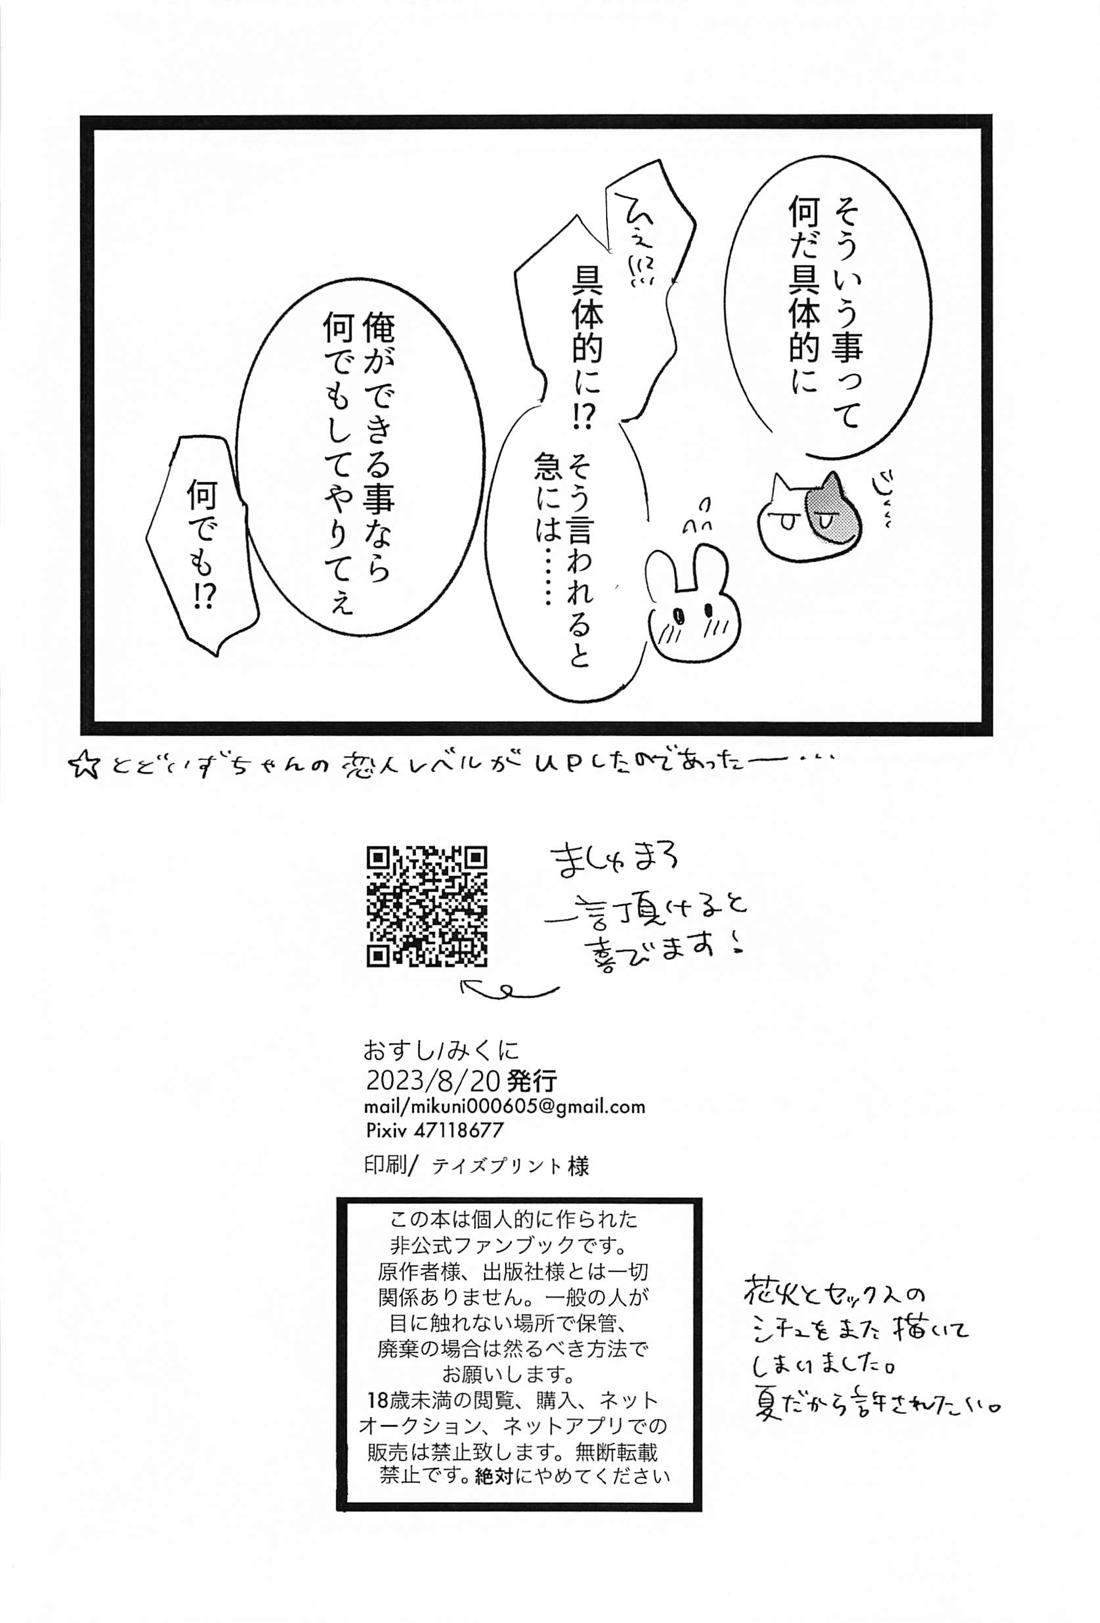 そういう事って
何だ具体的に
ジ…
ひぇ!!!
具体的に!?
そう言われると
急には……
俺ができる事なら
何でもしてやりてぇ
何でも!?
☆とどいずちゃんの恋人レベルがUPしたのであったー・・・
ましゅまろ
一言頂けると
喜びます!
おすし/みくに
2023/8/20 発行
mail/mikuni000605@gmail.com
Pixiv 47118677
印刷/ テイズプリント様
この本は個人的に作られた
非公式ファンブックです。
原作者様、出版社様とは一切
関係ありません。一般の人が
目に触れない場所で保管、
廃棄の場合は然るべき方法で
お願いします。
18歳未満の閲覧、購入、ネット
オークション、ネットアプリでの
販売は禁止致します。無断転載
禁止です。絶対にやめてください
花火とセックスの
シチュをまた描いて
しまいました。
夏だから許されたい。